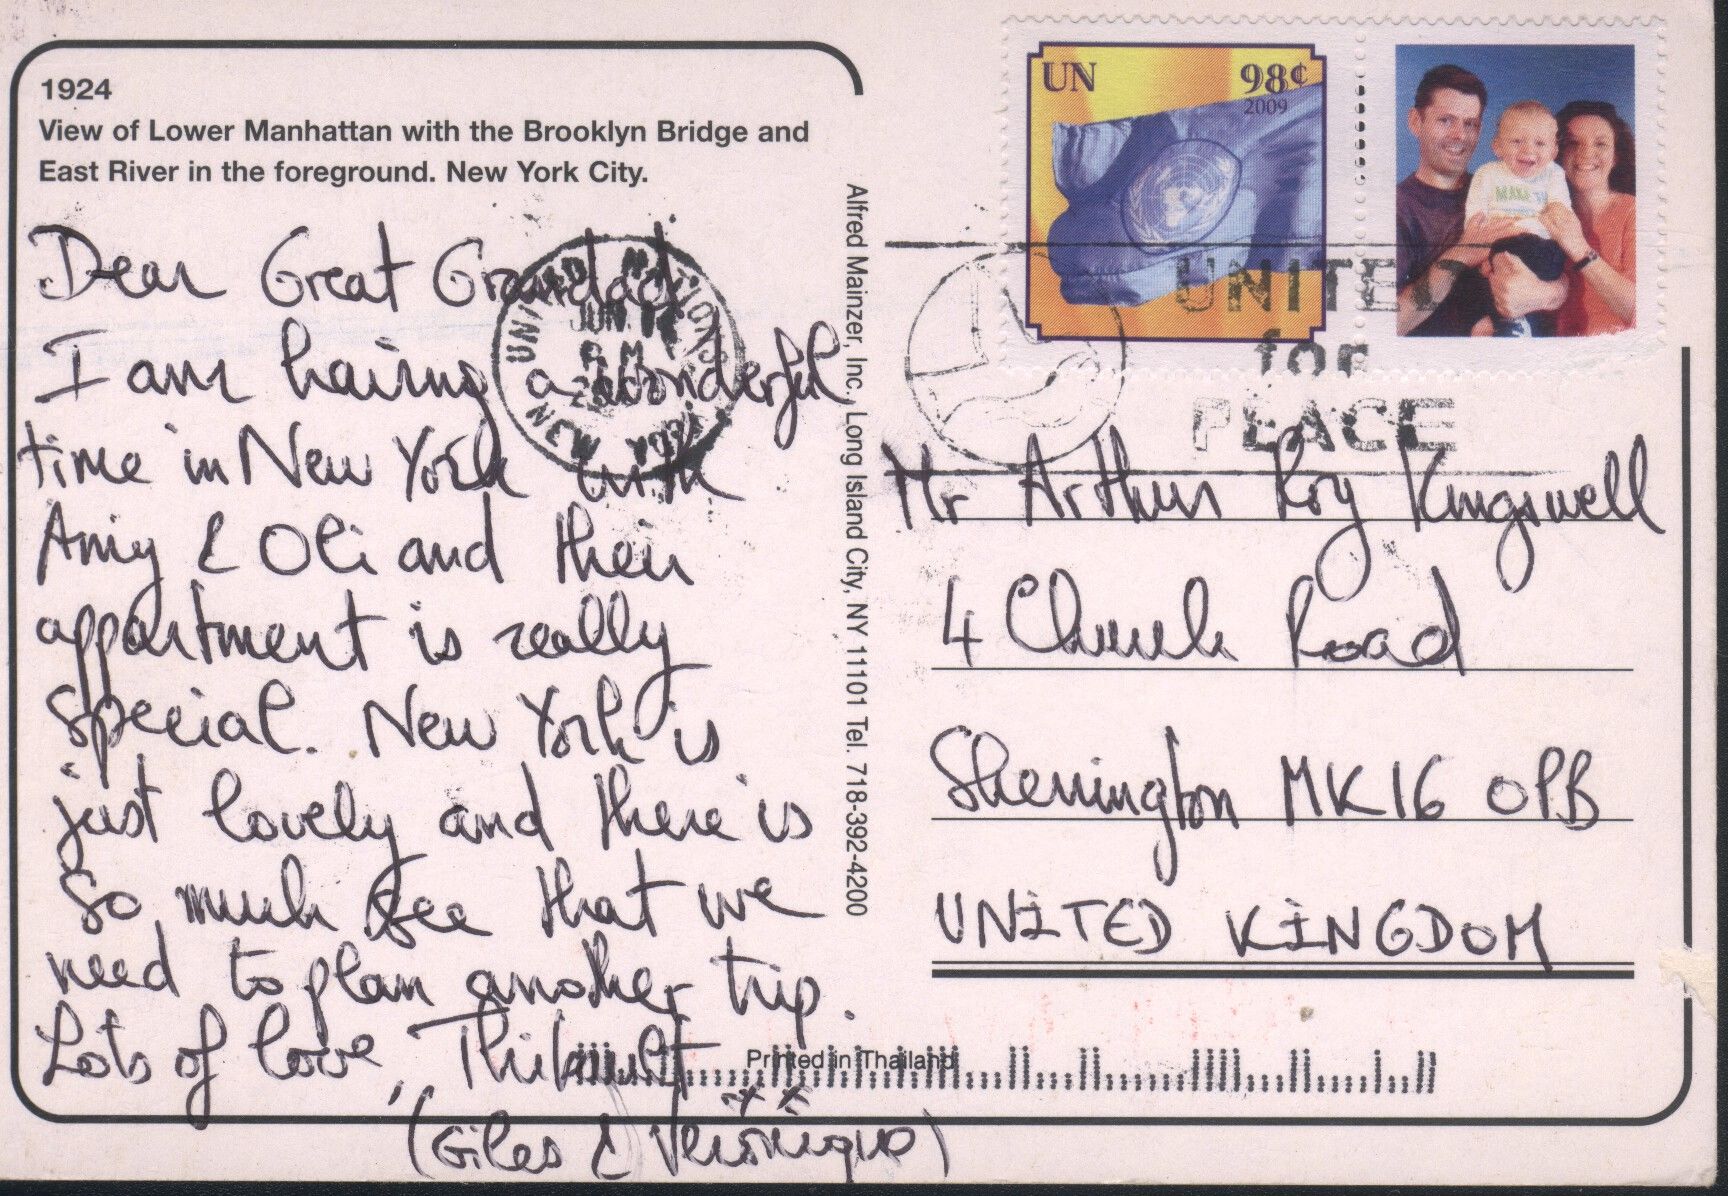 1924
View of Lower Manhattan with the Brooklyn Bridge and
East River in the foreground. New York City.
Dear Great Grandad
I am having a wonderful
time in New York with
Amy & Oli and their
appartment is really
special. New York is
just lovely and there is
so much see that we
need to plan another trip.
Lots of love, Thibault
xx
(Giles & Véronique)
UNITED NATIONS
JUN
NEW YORK
Alfred Mainzer, Inc., Long Island City, NY 11101 Tel. 718-392-4200
UN 98¢
2009
UNITED
for
PEACE
Mr Arthur Roy Kingswell
4 Church Road
Sherrington MK16 0PB
UNITED KINGDOM
Printed in Thailand